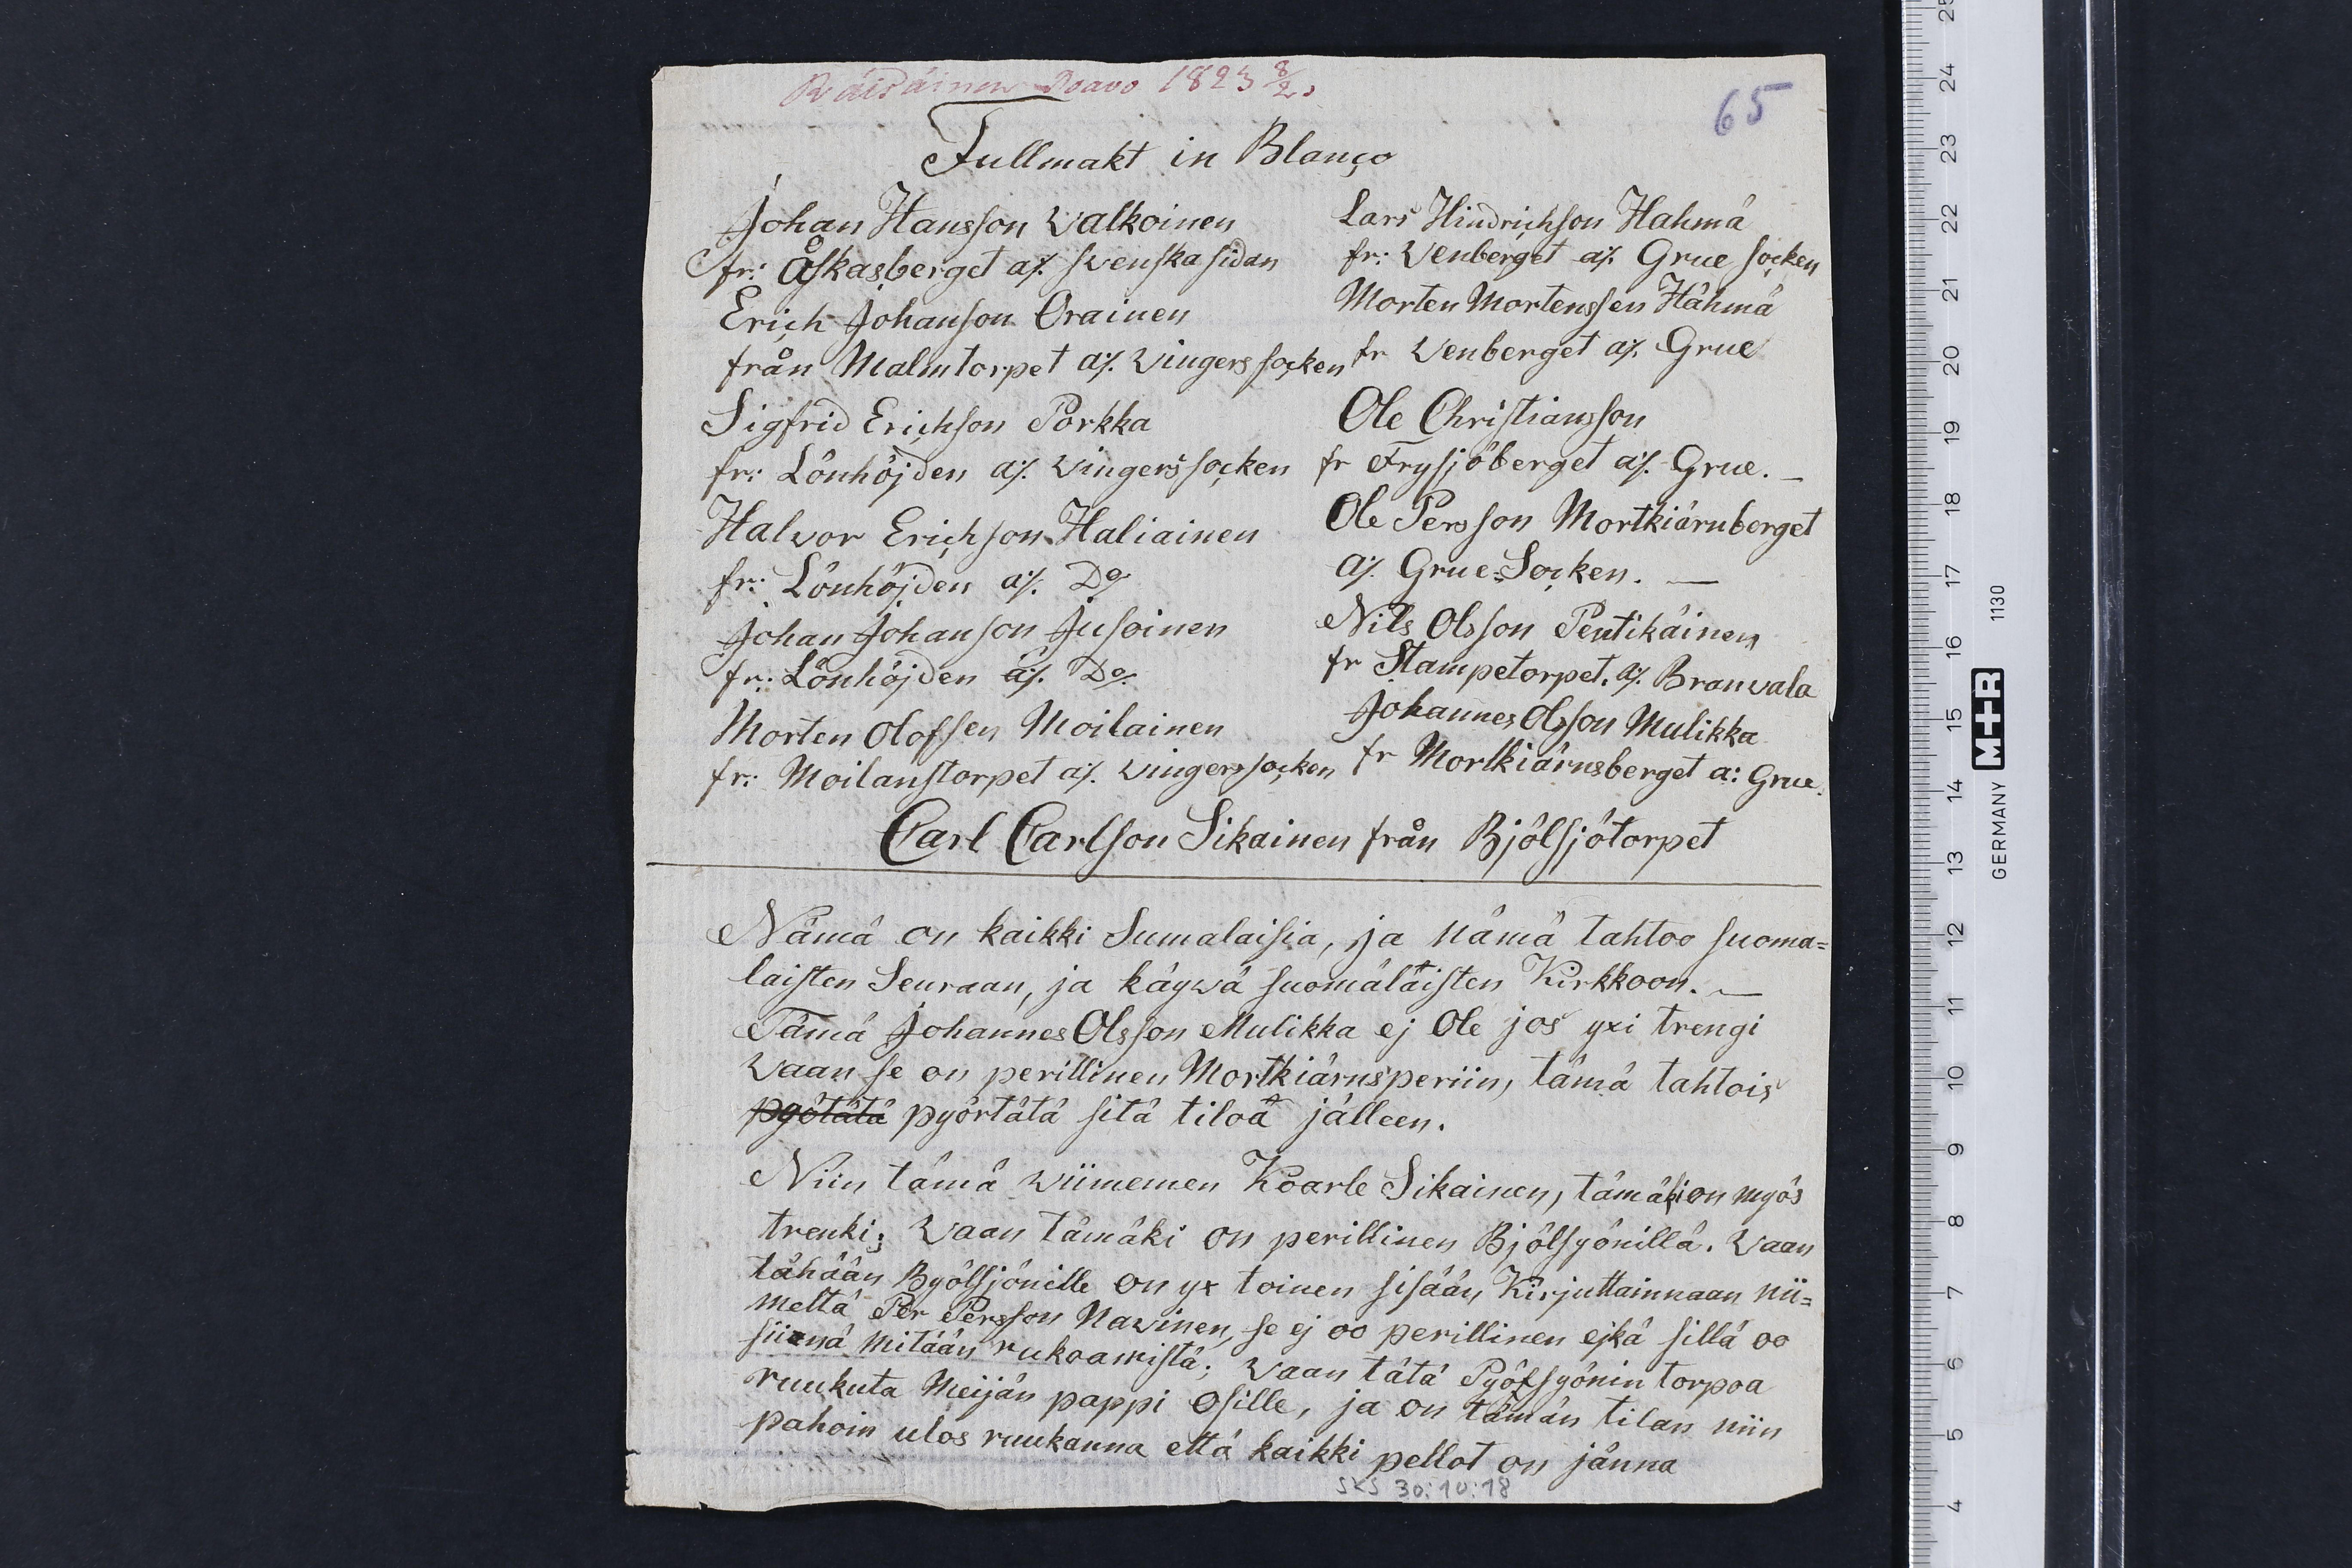 Räisäinen Poavo 1823 8/2.
65
Fullmakt in Blanço
Johan Hansson Walkoinen
fr: Åskasberget a/. Swenska sidan
Erich Johanson Orainen
från Malmtorpet a/. Vingers socken
Sigfrid Erichson Porkka
fr: Lönhöjden a/. Vingers socken
Halvor Erichson Haliainen
fr: Lönhöjden a/. Do
Johan Johanson Jusoinen
fr: Lönhöjden a/. Do.
Morten Olofsen Moilainen
fr: Moilanstorpet a/. Vingers socken
Lars Hindrichson Hahmä
fr: Venberget a/. Grue socken
Morten Mortenssen Hähmä
fr Venberget a/. Grue
Ole Christiansson
fr Frysjöberget a/. Grue. —
Ole Persson Mortkiärnberget
a/. Grue=Socken. —
Nils Olsson Pentikäinen
fr Stampetorpet. a/. Branvala
Johannes Olsson Mulikka
fr Mortkiärnsberget a: Grue.
Carl Carlson Sikainen från Bjölsjötorpet
Nämä on kaikki Sumalaisia, ja nämä tahtoo suoma=
laisten Seuraan, ja käywä suomäläisten Kirkkoon. —
Tämä Johannes Olsson Mulikka ej Ole jos yxi trengi
Waan se on perillinen Mortkiärnsperiin, tämä tahtois
pyötätä pyörtätä sitä tiloä jälleen.
Niin tämä wiimemen Koarle Sikainen, tämäki on myös
trenki; Waan tämäki on perillinen Bjölsyönillä. Waan
tähään Byölsjönille on yx toinen sisään Kirjuttainnaan nii=
meltä Per Persson Nawinen, se ej oo perillinen ejkä sillä oo
siinä mitään rukoamista; Waan tätä Pyölsyönin torpoa
ruukuta Meijän pappi Osille, ja on tämän tilan niin
pahoin ulos ruukanna että kaikki pellot on jänna
SKS 30:10:18
25
24
23
22
21
20
19
18
17
16
15
14
13
12
11
10
9
8
7
6
5
4
GERMANY M+R 1130